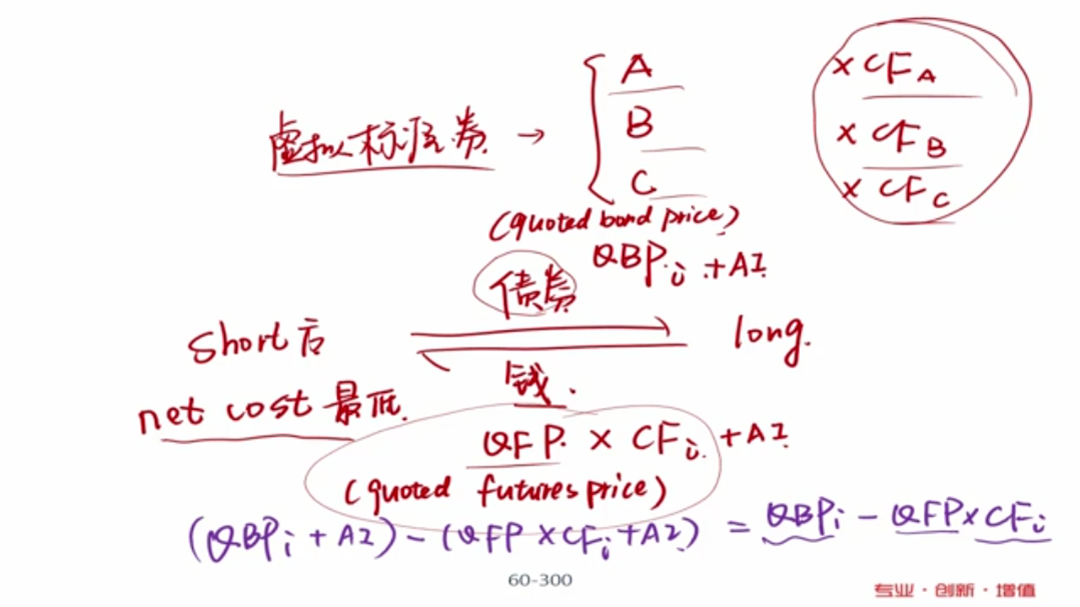 A
× CF_A
虚拟标准券 →
B
× CF_B
C
× CF_C
(quoted bond price)
QBP_i + AI
债券
short后
long.
钱.
net cost 最低.
QFP. × CF_i. + AI.
(quoted futures price)
(QBP_i + AI) - (QFP × CF_i + AI) = QBP_i - QFP × CF_i
60-300
专业·创新·增值